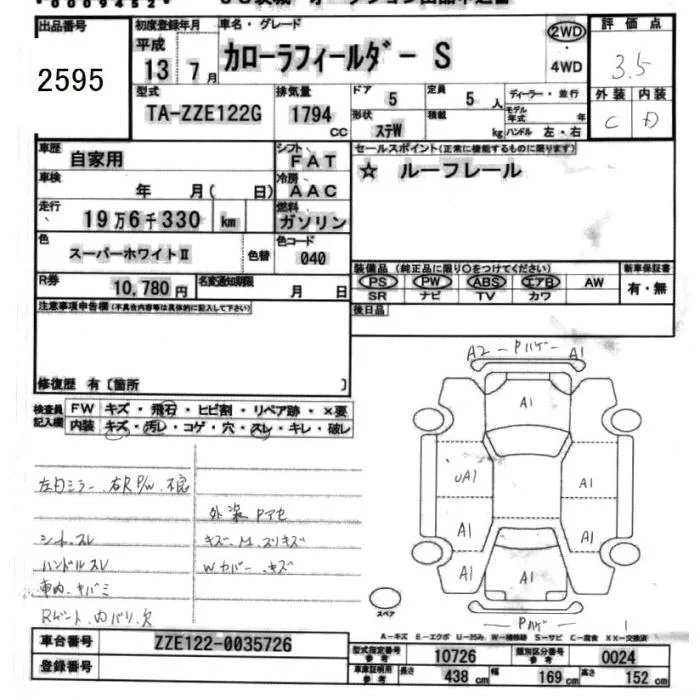 出品番号
2595
初度登録年月
平成
13年 7月
車名・グレード
カローラフィールダー S
2WD
4WD
評価点
3.5
外装 内装
C D
型式
TA-ZZE122G
排気量
1794
CC
ドア
5
定員
5人
ディーラー・並行
形状
ステW
積載
kg
モデル年式
年
ハンドル 左・右
車歴
自家用
シフト
FAT
セールスポイント(正常に機能するものに限ります)
☆ ルーフレール
車検
年 月( 日)
冷房
AAC
走行
19万6千330 km
燃料
ガソリン
色
スーパーホワイトⅡ
色替
色コード
040
R券
10,780円
名変通知期限
月 日
装備品(純正品に限り○をつけてください)
新車保証書
PS PW ABS エアB AW
有・無
SR ナビ TV カワ
後日品
注意事項申告欄(不具合内容等は具体的に記入して下さい)
修復歴 有〔箇所 〕
検査員記入欄
FW キズ・飛石・ヒビ割・リペア跡・×要
内装 キズ・汚レ・コゲ・穴・スレ・キレ・破レ
A2 Pハゲ A1
A1
UA1 A1
A1 A1
A1 A1 A1
Pハゲ
スペア
左ドミラー 右R P/W 不良
外装 Pアセ
シート スレ
ハンドル スレ
Wカバー キズ
Rゲート 内バリ 欠
A-キズ E-エクボ U-凹み W-補修跡 S-サビ C-腐食 XX-交換済
車台番号
ZZE122-0035726
登録番号
型式指定番号
参考
10726
類別区分番号
参考
0024
車庫証明用
参考
長さ
438 cm
幅
169 cm
高さ
152 cm